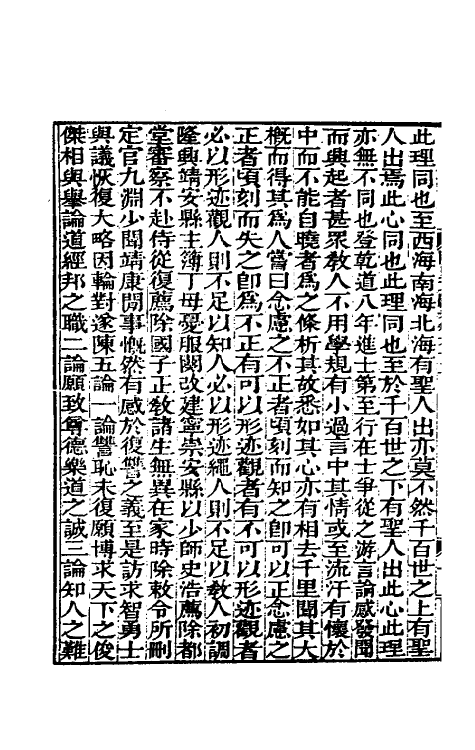 此理同也至西海南海北海有聖人出亦莫不然千百世之上有聖
人出焉此心同也此理同也至於千百世之下有聖人出此心此理
亦無不同也登乾道八年進士第至行在士爭從之游言論感發聞
而興起者甚眾教人不用學規有小過言中其情或至流汗有懷於
中而不能自曉者為之條析其故悉如其心亦有相去千里聞其大
槪而得其為人嘗曰念慮之不正者頃刻而知之卽可以正念慮之
正者頃刻而失之卽為不正有可以形迹觀者有不可以形迹觀者
必以形迹觀人則不足以知人必以形迹繩人則不足以敎人初調
隆興靖安縣主簿丁母憂服闋改建寧崇安縣以少師史浩薦除都
堂審察不赴侍從復薦除國子正敎諸生無異在家時除敕令所刪
定官九淵少聞靖康閒事慨然有感於復讐之義至是訪求智勇士
與議恢復大略因輪對遂陳五論一論讐恥未復願博求天下之俊
傑相與舉論道經邦之職二論願致尊德樂道之誠三論知人之難